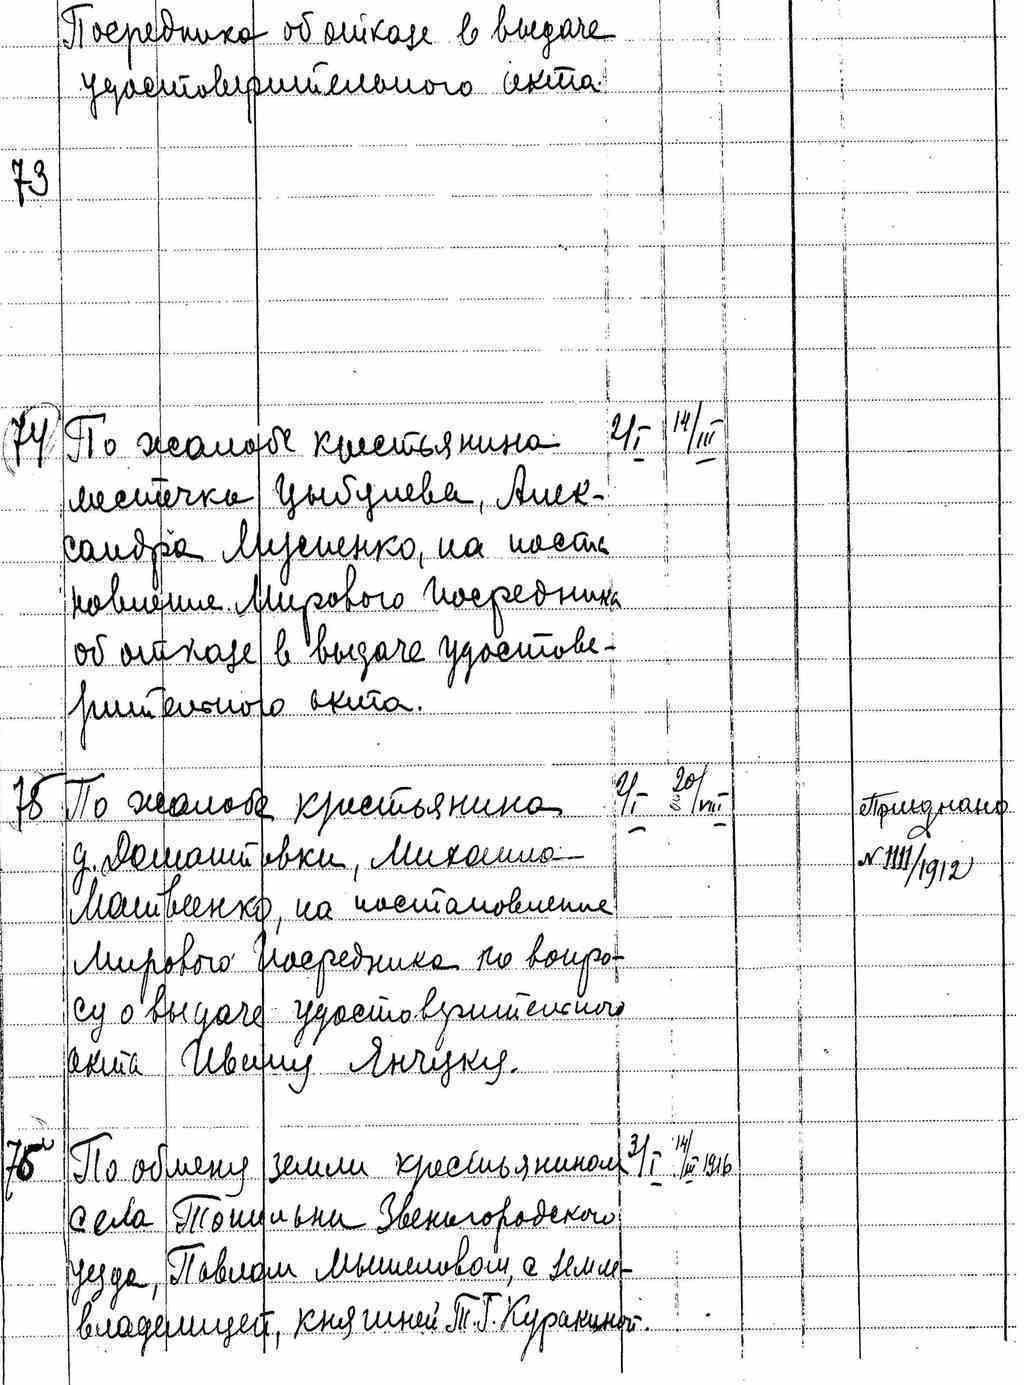 Посредника об отказе в выдаче
удостоверительного акта
73
74 По жалобе крестьянина 2/I 14/III
местечка Цыбулева, Алек-
сандра Мусиенко, на поста
новление Мирового Посредника
об отказе в выдаче удостове-
рительного акта.
75 По жалобе крестьянина 2/I 20/VIII
д. Домантовки, Михаила
Матвеенко, на постановление
Мирового Посредника по вопро-
су о выдаче удостоверительного
акта Ивану Янчуку.
N 1111/1912
75а По обмену земли крестьянином 3/I 14/III 1916
села Топильни Звенигородского
уезда, Павлом с земле-
владелицей, княгиней Т.Г. Куракиной.